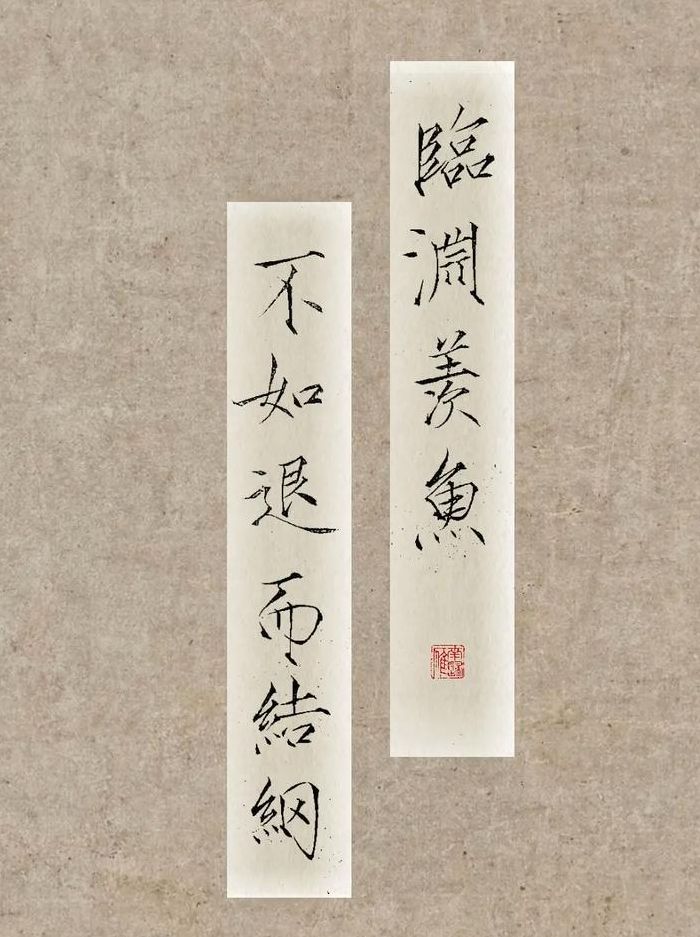 臨淵羨魚
不如退而結網